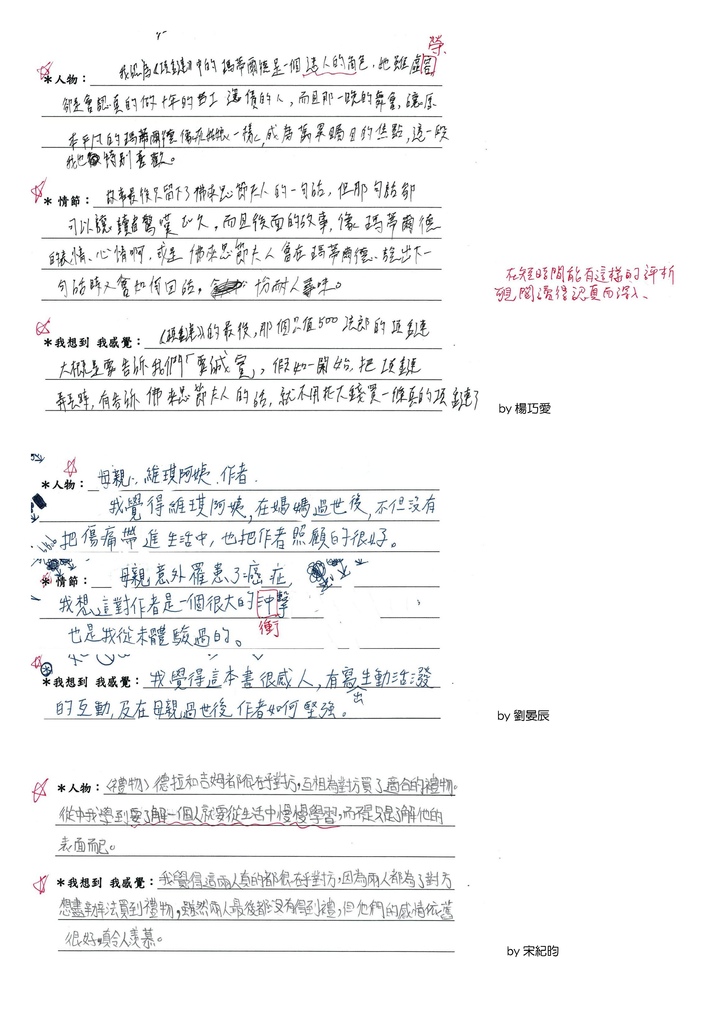 榮
*人物：我認為《項鍊》中的瑪蒂爾德是一個迷人的角色，她雖虛容
卻是會認真的做十年的苦工還債的人，而且那一晚的舞會，讓原
本平凡的瑪蒂爾德像一樣，成為萬眾矚目的焦點，這一段
我也特別喜歡。
*情節：故事最後只留下了佛來思節夫人的一句話，但那句話卻
可以讓讀者驚嘆已久，而且後面的故事，像瑪蒂爾德
的表情、心情啊，或是佛來思節夫人會在瑪蒂爾德說出下一
句話時又會如何回話，十分耐人尋味。
在短時間能有這樣的評析
現閱讀得認真而深入、
*我想到 我感覺：《項鍊》的最後，那個只值500法郎的項鍊
大概是要告訴我們「要誠實」，假如一開始把項鍊
弄丟時，有告訴佛來思節夫人的話，就不用花大錢買一條真的項鍊了
by 楊巧愛
*人物：母親、維琪阿姨、作者.
我覺得維琪阿姨，在媽媽過世後，不但沒有
把傷痛帶進生活中，也把作者照顧的很好。
*情節：母親意外罹患了癌症，
我想這對作者是一個很大的沖擊
衝
也是我從未體驗過的。
*我想到 我感覺：我覺得這本書很感人，有寫出生動活潑
的互動，及在母親過世後作者如何堅強。
by 劉晏辰
*人物：〈禮物〉德拉和吉姆都很在乎對方，互相為對方買了適合的禮物。
從中我學到要了解一個人就要從生活中慢慢學習，而不是只是了解他的
表面而已。
*我想到 我感覺：我覺得這兩人真的都很在乎對方，因為兩人都為了對方
想盡辦法買到禮物，雖然兩人最後都沒有得到禮，但他們的感情依舊
很好，真令人羨慕。
by 宋紀昀